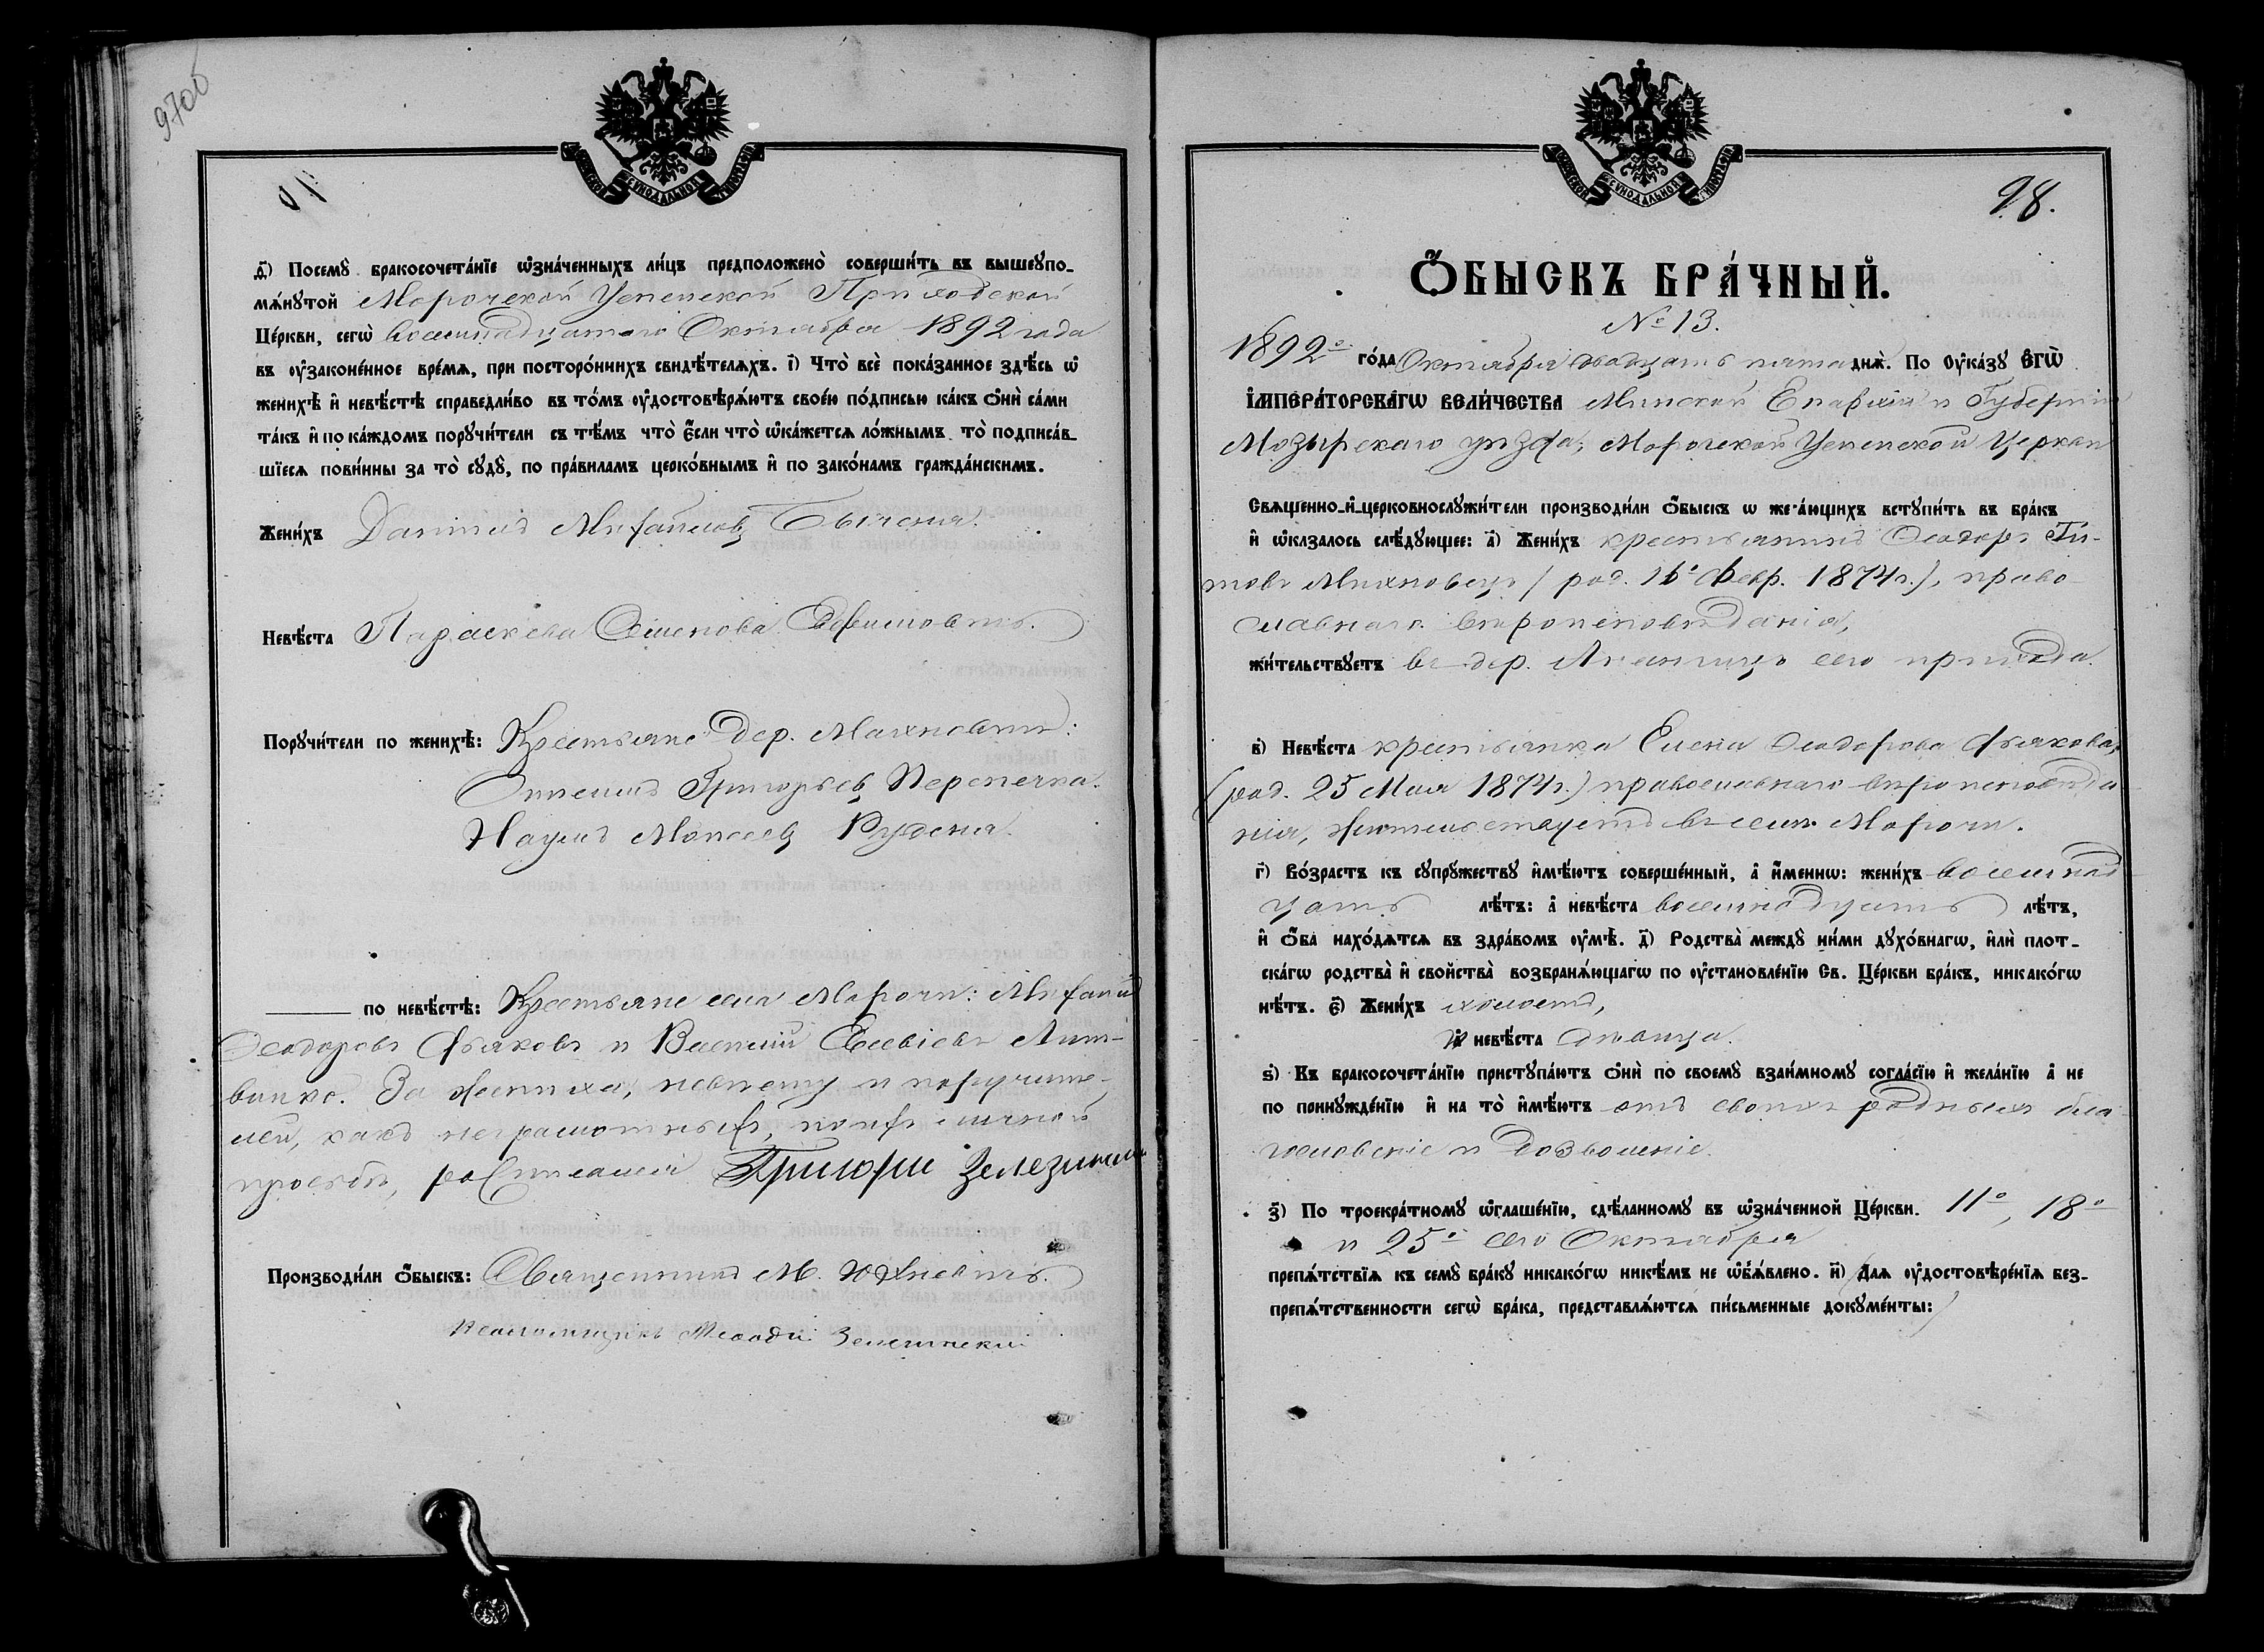 97об
д҃) Посемꙋ̀ бракосочета́нїе ѡ҆зна́ченныхъ ли́цъ предположено̀ соверши́ть въ вышеꙋпо-
мѧ́нꙋтой Морочской Успенской Приходской
Це́ркви, сегѡ̀ восемнадцатого Октября 1892 года
въ ᲂу҆законе́нное вре́мѧ, при посторо́ннихъ свидѣ́телѧхъ. і҃) Что̀ всѐ пока́занное здѣ́сь ѡ҆
женихѣ̀ и҆ невѣ́стѣ справедли́во въ то́мъ ᲂу҆достовѣрѧ́ютъ свое́ю по́дписью ка́къ ѻ҆нѝ са́ми
та́къ и҆ по ка́ждомъ порꙋчи́тели съ тѣ́мъ что̀ є҆́сли что̀ ѡ҆ка́жетсѧ ло́жнымъ то̀ подписа́в-
шїесѧ пови́нны за то̀ сꙋдꙋ̀, по пра́виламъ церко́внымъ и҆ по зако́намъ гражда́нскимъ.
Жени́хъ Даниилъ Михаиловъ
Невѣ́ста Параскева Семенова
Порꙋчи́тели по женихѣ̀: Крестьяне дер. Махновичъ:
Григорьевъ Перепечка.
Наумъ Моисеевъ Руденя.
по невѣ́стѣ: Крестьяне села Морочи: Михаилъ
Ѳеодоровъ Дьяковъ и Василий Лит-
винко. За жениха, невесту и поручите-
лей, какъ неграмотныхъ, по ихъ личной
просьбѣ, росписался Григорий
Производи́ли ѻ҆́быскъ: Священникъ М.
Псаломщикъ
98.
Ѻ҆́БЫСКЪ БРА́ЧНЫЙ.
№ 13.
1892º го́да Октября двадцать пята днѧ̀. По ᲂу҆ка́зꙋ Є҆ГѠ̀
І҆МПЕРА́ТОРСКАГѠ ВЕЛИ́ЧЕСТВА Минской Епархіи и Губерніи
Мозырскаго уѣзда, Морочской Успенской церкви
Сващенно-и҆-церковнослꙋжи́тели производи́ли ѻ҆́быскъ ѡ жела́ющихъ встꙋпи́ть въ бра́къ
и҆ ѡ҆казалось слѣ́дꙋющее: а҃) Жени́хъ крестьянинъ Ѳеодоръ Ти-
товъ Михновецъ (род. 16º Февр. 1874 г.), право-
славнаго вѣроисповѣданія,
жи́тельствꙋетъ въ дер. сего прихода.
в҃) Невѣ́ста крестьянка Елена Ѳеодорова Дьякова,
(род. 25 Мая 1874 г.) православнаго вѣроисповѣда-
нія, жительствуетъ въ селѣ Морочи.
г҃) Во́зрастъ къ сꙋпрꙋ́жествꙋ и҆мѣ́ютъ соверше́нный, а҆ и҆́меннѡ: жени́хъ восемнад-
цать лѣ́тъ: а҆ невѣ́ста восемнадцать лѣ́тъ,
и҆ ѻ҆́ба нахо́дѧтсѧ въ здра́вомъ ᲂу҆мѣ̀. д҃) Родства̀ междꙋ̀ ни́ми дꙋхо́внагѡ, и҆лѝ плот-
ска́гѡ родства̀ и҆ свойства̀ возбранѧ́ющагѡ по ᲂу҆становле́нїю Св. Це́ркви бра́къ, никако́гѡ
нѣ́тъ. є҃) Жени́хъ холостъ,
и невѣ́ста дѣвица.
ѕ҃) Къ бракосочета́нїю пристꙋпа́ютъ ѻ҆нѝ по своемꙋ̀ взаи́мномꙋ согла́сїю и҆ жела́нїю а҆ не
по принꙋжде́нїю и҆ на то̀ и҆мѣ́ютъ отъ своихъ родныхъ бла-
гословеніе и дозволеніе.
з҃) По троекра́тномꙋ ѡ҆глаше́нїю, сдѣ́ланномꙋ въ ѡ҆зна́ченной Це́ркви. 11º, 18º
и 25º сего Октября
препѧ́тствїѧ къ семꙋ̀ бра́кꙋ никако́гѡ никѣ́мъ не ѡ҆б̾ѧ́влено. и҃) Для ᲂу҆достовѣре́нїѧ без-
препѧ́тственности сегѡ̀ бра́ка, представлѧ́ютсѧ пи́сьменные докꙋме́нты: